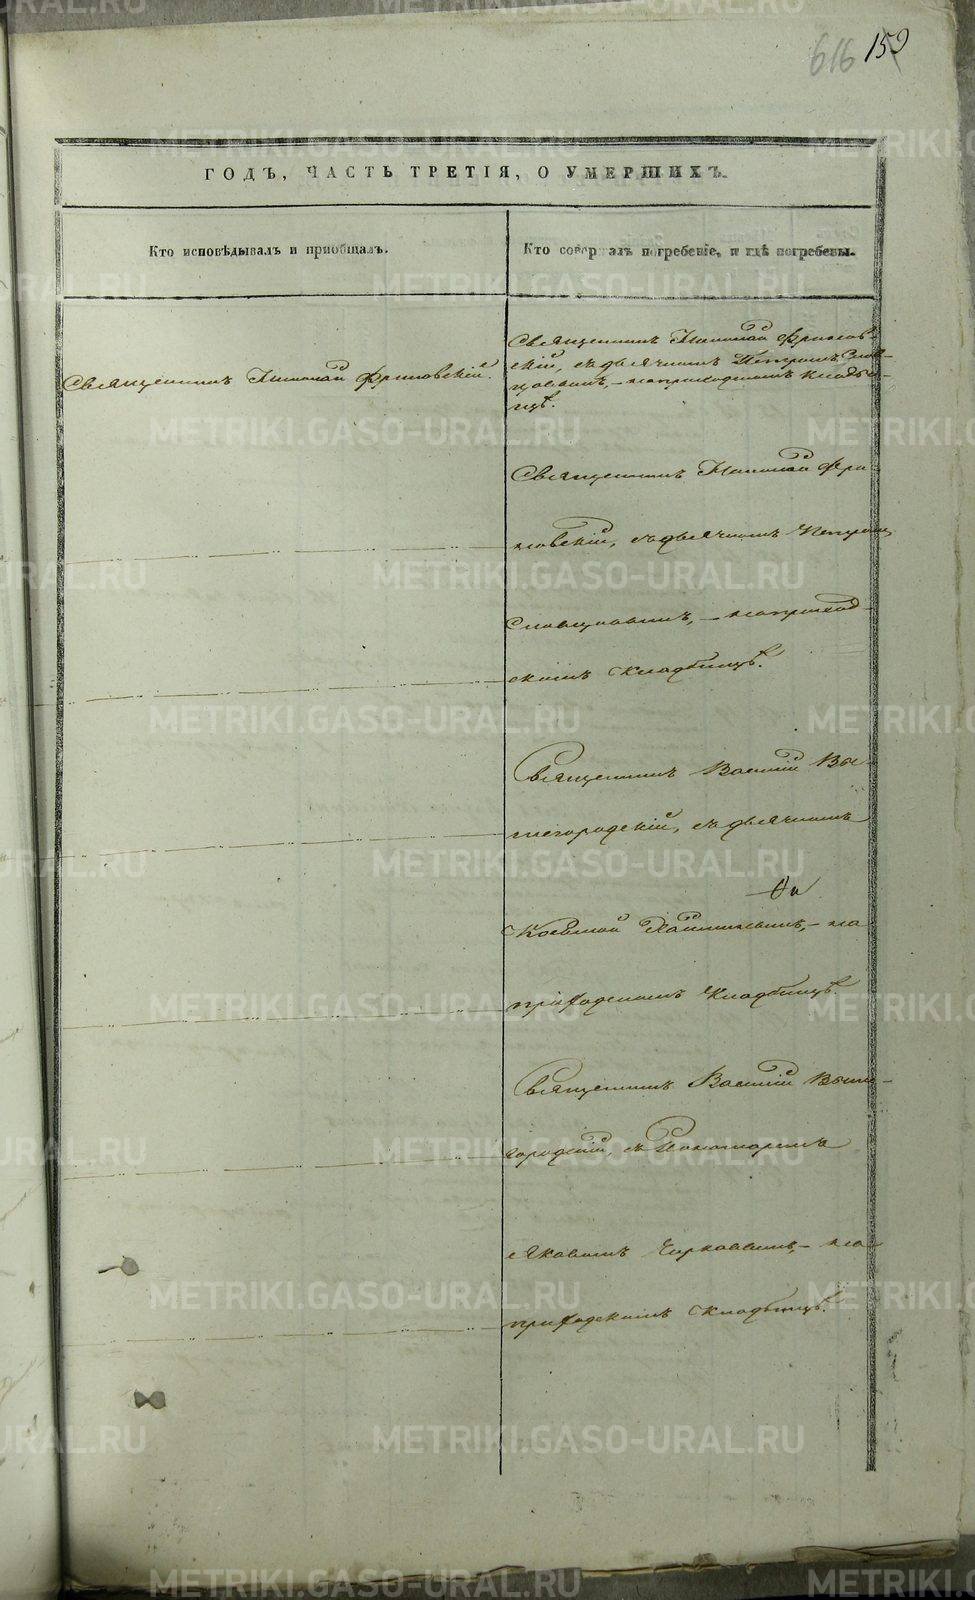 616 159
ГОДЪ, ЧАСТЬ ТРЕТІЯ, О УМЕРШИХЪ.
Кто исповѣдывалъ и пріобщалъ.
Кто совершалъ погребеніе, и гдѣ погребены.
Священникъ Николай Фриловскій.
Священникъ Николай Фрилов-
скій, съ дьячкомъ Петромъ Слов-
цовымъ, – на приходскомъ кладби-
щѣ.
Священникъ Николай Фри-
ловскій, съ дьячкомъ Петромъ
Словцовымъ, – на приход-
скомъ кладбищѣ.
Священникъ Василій Вы-
шегородскій, съ дьячкомъ
Космой – на
приходскомъ кладбищѣ.
Священникъ Василій Выше-
городскій, съ Пономаремъ
Яковомъ Чирковымъ, – на
приходскомъ кладбищѣ.
METRIKI.GASO-URAL.RU